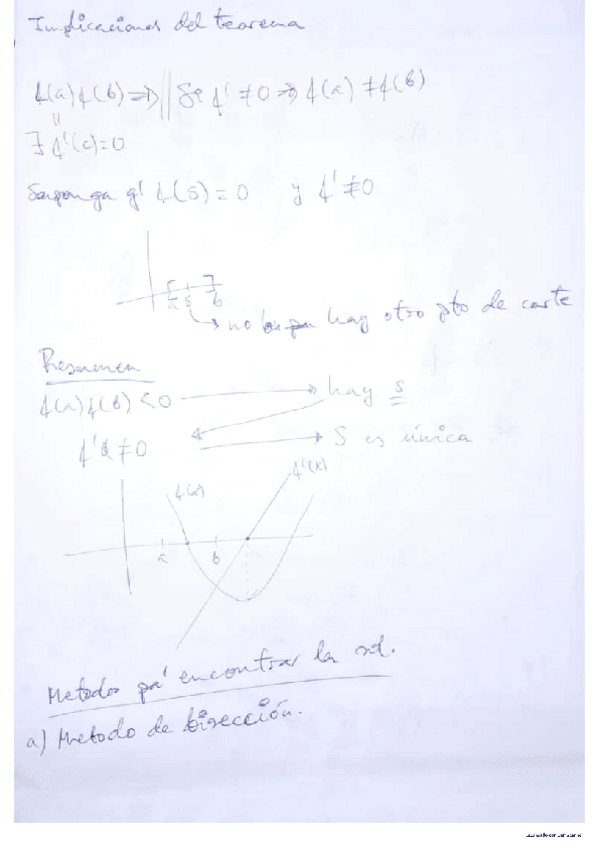 Implicaciones del teorema
f(a) f(b) => || Si f' ≠ 0 => f(a) ≠ f(b)
"
∃ f'(c) = 0
Suponga q' f(s) = 0 y f' ≠ 0
a s b
↳ no hay otro pto de corte
Resumen
f(a) f(b) < 0 → hay s
f' ≠ 0 → S es única
f(x) f'(x)
a b
Metodos pa' encontrar la sol.
a) Metodo de bisección.